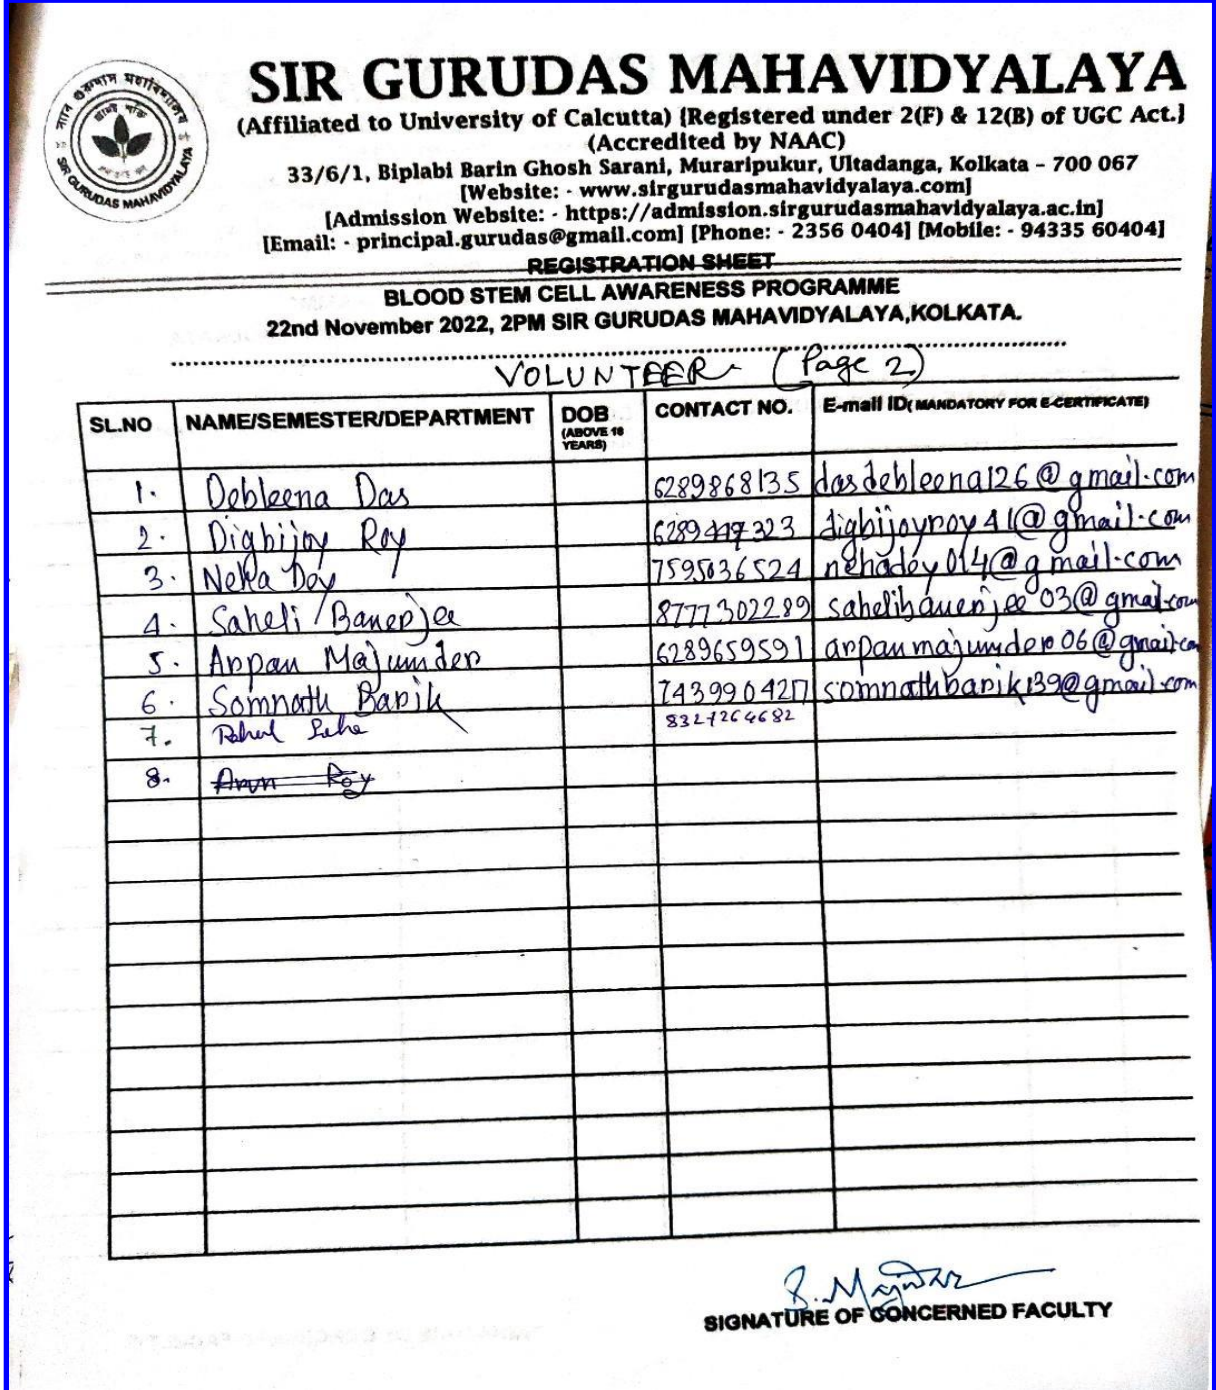 স্যার গুরুদাস মহাবিদ্যালয়
SIR GURUDAS MAHAVIDYALAYA
SIR GURUDAS MAHAVIDYALAYA
(Affiliated to University of Calcutta) {Registered under 2(F) & 12(B) of UGC Act.}
(Accredited by NAAC)
33/6/1, Biplabi Barin Ghosh Sarani, Muraripukur, Ultadanga, Kolkata - 700 067
[Website: - www.sirgurudasmahavidyalaya.com]
[Admission Website: - https://admission.sirgurudasmahavidyalaya.ac.in]
[Email: - principal.gurudas@gmail.com] [Phone: - 2356 0404] [Mobile: - 94335 60404]
REGISTRATION SHEET
BLOOD STEM CELL AWARENESS PROGRAMME
22nd November 2022, 2PM SIR GURUDAS MAHAVIDYALAYA,KOLKATA.
VOLUNTEER (Page 2)
SL.NO NAME/SEMESTER/DEPARTMENT DOB (ABOVE 18 YEARS) CONTACT NO. E-mail ID( MANDATORY FOR E-CERTIFICATE)
1. Debleena Das 6289868135 dasdebleena126@gmail.com
2. Digbijoy Roy digbijoyroy41@gmail.com
3. Neha Dey 7595036524 nehadey014@gmail.com
4. Saheli Banerjee 8777302289 sahelibanerjee03@gmail.com
5. Arpan Majumder 6289659591 arpanmajumder06@gmail.com
6. Somnath Barik somnathbarik139@gmail.com
7. Rahul Saha 8327264682
8. Arun Roy
SIGNATURE OF CONCERNED FACULTY